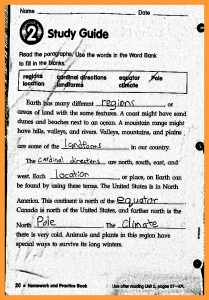 Name Date
2 Study Guide
Read the paragraphs. Use the words in the Word Bank
to fill in the blanks.
regions cardinal directions equator Pole
location landforms climate
Earth has many different regions, or
areas of land with the same features. A coast might have sand
dunes and beaches next to an ocean. A mountain range might
have hills, valleys, and rivers. Valleys, mountains, and plains
are some of the landforms in our country.
The cardinal directions are north, south, east, and
west. Each location, or place, on Earth can
be found by using these terms. The United States is in North
America. This continent is north of the equator.
Canada is north of the United States, and farther north is the
North Pole. The Climate
there is very cold. Animals and plants in this region have
special ways to survive its long winters.
20 Homework and Practice Book Use after reading Unit 2, pages 57–